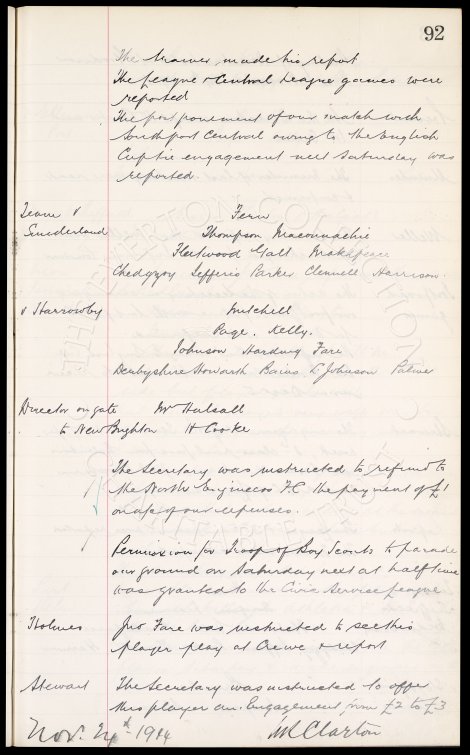 92
The trainer made his report
The League & Central League games were
reported
The postponement of our match with
Southport Central owing to the English
Cuptie engagement next Saturday was
reported.
Team v Fern
Sunderland Thompson Maconnachie
Fleetwood Galt Makepeace
Chedgzoy Jefferis Parker Clennell Harrison
v Harrowby Mitchell
Page. Kelly.
Johnson Harding Fare
Derbyshire Howarth Bains Johnson Palmer
Director on gate Mr Halsall
to New Brighton H Cooke
The Secretary was instructed to refund to
the North Engineers F.C. the payment of £1
on a/c of our expenses.
Permission for Troop of Boy Scouts to parade
our ground on Saturday next at half time
was granted to the Civic Service League
Holmes Jno Fare was instructed to see this
player play at Crewe & report
Stewart The Secretary was instructed to offer
this player an Engagement from £2 to £3
Nov. 24th 1914 W R Clayton
THE EVERTON COLLECTION CHARITABLE TRUST